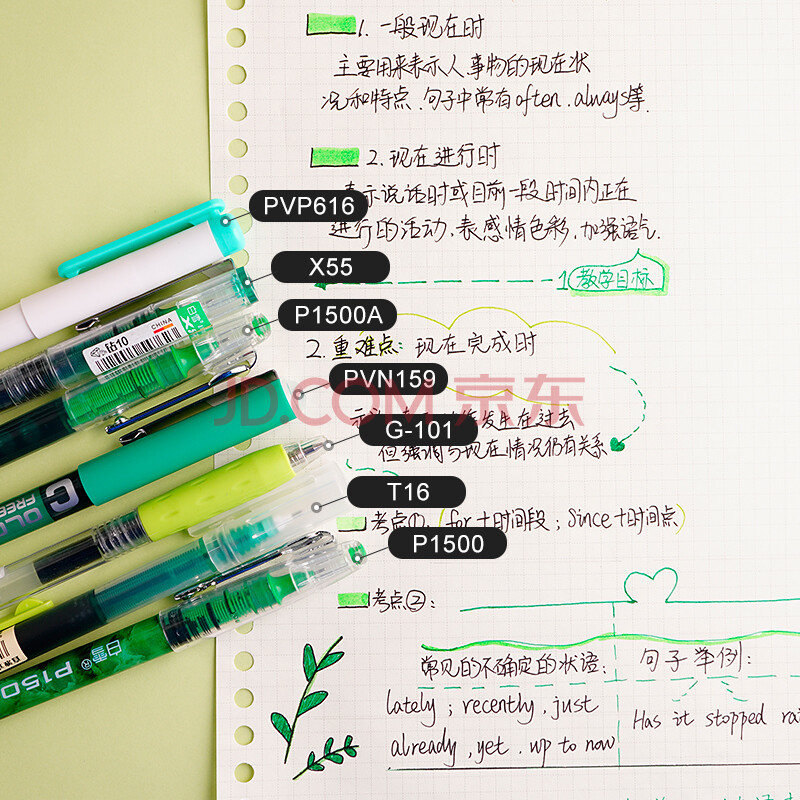 1. 一般现在时
主要用来表示人事物的现在状
况和特点.句子中常有often.always等.
2.现在进行时
表示说话时或目前一段时间内正在
进行的活动.表感情色彩,加强语气.
PVP616
X55
1 教学目标
P1500A
2. 重难点: 现在完成时
JD.COM 京东
PVN159
发生在过去
G-101
但强调与现在情况仍有关系
T16
考点①. (for+时间段; Since+时间点)
P1500
考点②:
常见的不确定的状语:
句子举例:
lately ; recently , just
already , yet . up to now
Has it stopped
钻10
CHINA
白雪
FREE
白雪® P150